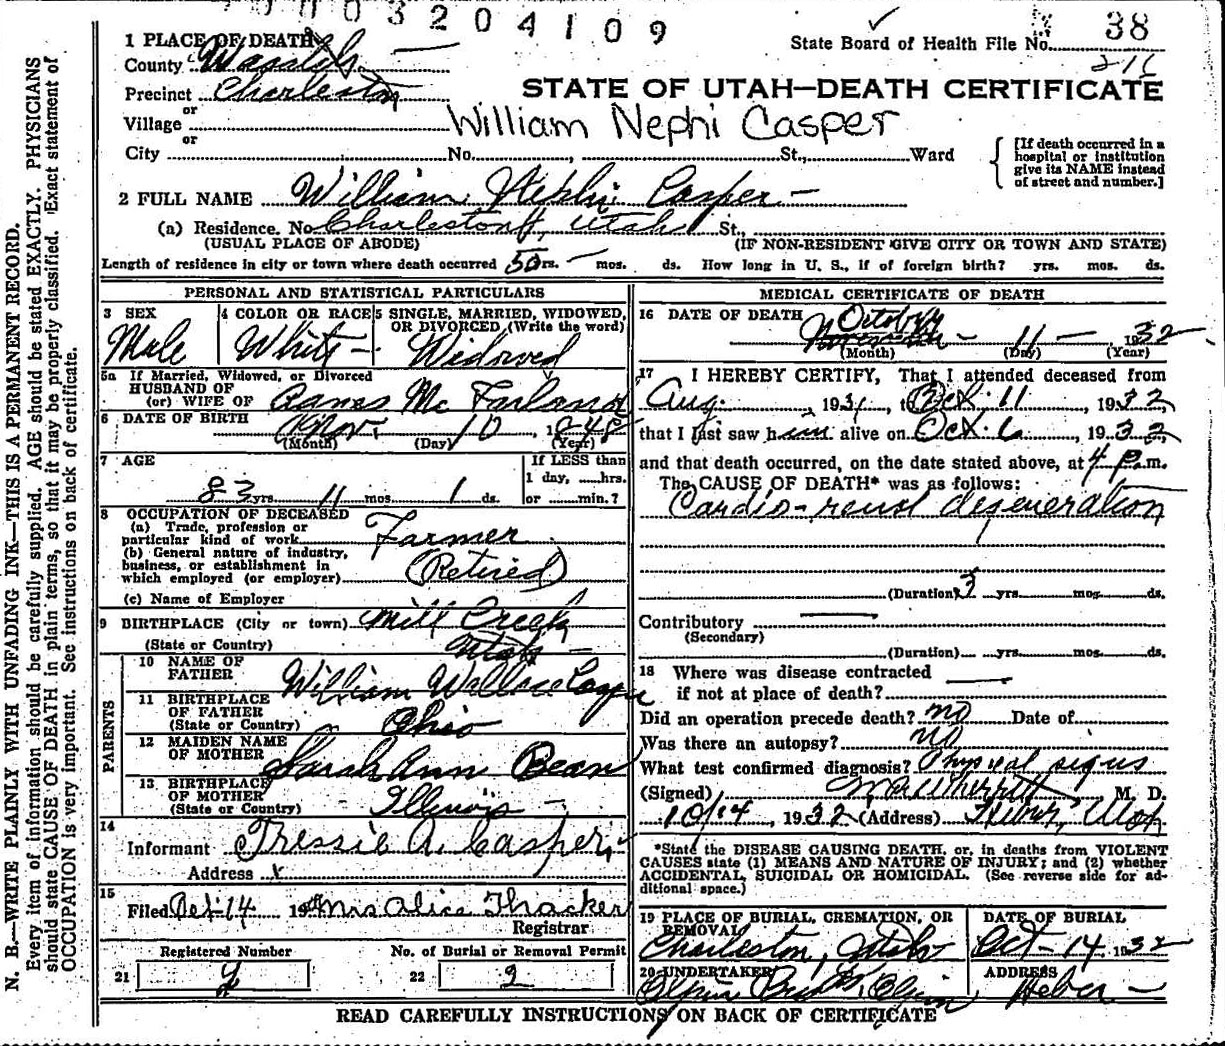 0003204109
State Board of Health File No. 38
216
1 PLACE OF DEATH
County Wasatch
STATE OF UTAH—DEATH CERTIFICATE
Precinct Charleston
or
Village William Nephi Casper
or
City No. St., Ward
[If death occurred in a hospital or institution give its NAME instead of street and number.]
2 FULL NAME William Nephi Casper
(a) Residence. No. Charleston, Utah St.,
(USUAL PLACE OF ABODE) (IF NON-RESIDENT GIVE CITY OR TOWN AND STATE)
Length of residence in city or town where death occurred 50 yrs. — mos. ds. How long in U. S., if of foreign birth? yrs. mos. ds.
PERSONAL AND STATISTICAL PARTICULARS
3 SEX 4 COLOR OR RACE 5 SINGLE, MARRIED, WIDOWED, OR DIVORCED (Write the word)
Male White — Widowed
5a If Married, Widowed, or Divorced
HUSBAND OF
(or) WIFE OF Agnes Mc Farland
6 DATE OF BIRTH Nov. 10, 1848
(Month) (Day) (Year)
7 AGE If LESS than
1 day, ......hrs.
83 yrs. 11 mos. 1 ds. or ......min.?
8 OCCUPATION OF DECEASED
(a) Trade, profession or
particular kind of work Farmer
(b) General nature of industry,
business, or establishment in
which employed (or employer) (Retired)
(c) Name of Employer
9 BIRTHPLACE (City or town) Mill Creek
(State or Country) Utah —
PARENTS
10 NAME OF
FATHER William Wallace Casper
11 BIRTHPLACE
OF FATHER
(State or Country) Ohio
12 MAIDEN NAME
OF MOTHER Sarah Ann Bean
13 BIRTHPLACE
OF MOTHER
(State or Country) Illinois —
14
Informant Tressie A. Casper
Address x
15
Filed Oct 14 19 Mrs Alice Thacker
Registrar
Registered Number No. of Burial or Removal Permit
21 2 22 2
MEDICAL CERTIFICATE OF DEATH
16 DATE OF DEATH October
November — 11 — 1932
(Month) (Day) (Year)
17 I HEREBY CERTIFY, That I attended deceased from
Aug. , 1931, to Oct. 11, 1932
that I last saw him alive on Oct. 6, 1932
and that death occurred, on the date stated above, at 4 P.m.
The CAUSE OF DEATH* was as follows:
Cardio-renal degeneration
(Duration) 3 yrs. mos. ds.
Contributory —
(Secondary)
(Duration) yrs. mos. ds.
18 Where was disease contracted
if not at place of death? —
Did an operation precede death? no Date of
Was there an autopsy? no
What test confirmed diagnosis? Physical signs
(Signed) M. D.
10/14, 1932 (Address) Heber, Utah
*State the DISEASE CAUSING DEATH, or, in deaths from VIOLENT
CAUSES state (1) MEANS AND NATURE OF INJURY; and (2) whether
ACCIDENTAL, SUICIDAL OR HOMICIDAL. (See reverse side for ad-
ditional space.)
19 PLACE OF BURIAL, CREMATION, OR REMOVAL DATE OF BURIAL
Charleston, Utah Oct — 14 1932
20 UNDERTAKER ADDRESS
Olpin Heber —
READ CAREFULLY INSTRUCTIONS ON BACK OF CERTIFICATE
N. B.—WRITE PLAINLY WITH UNFADING INK—THIS IS A PERMANENT RECORD.
Every item of information should be carefully supplied. AGE should be stated EXACTLY. PHYSICIANS
should state CAUSE OF DEATH in plain terms, so that it may be properly classified. Exact statement of
OCCUPATION is very important. See instructions on back of certificate.